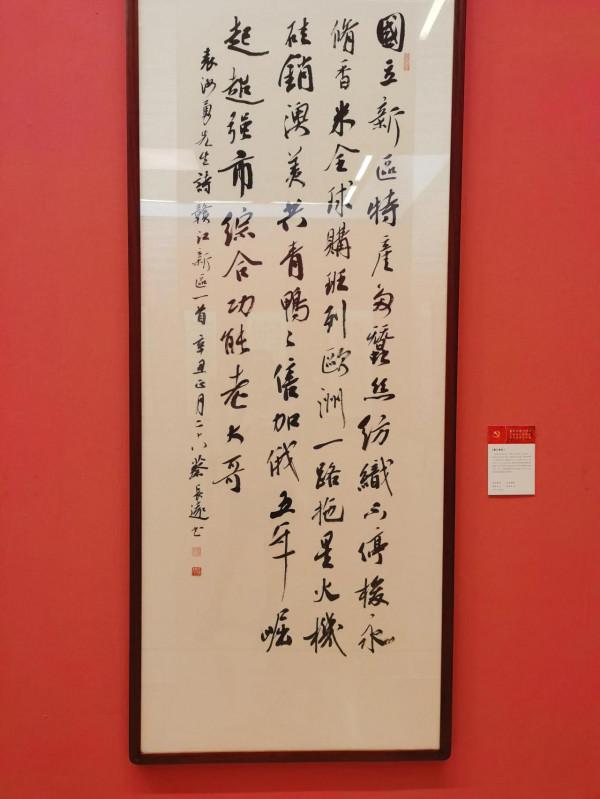 國立新區特產多蠶絲紡織不停梭永
脩香米全球購班列歐洲一路拖星火機
硅銷澳美共青鴨々倍加俄五年崛
起超强市綜合功能老大哥
袁汝勇先生詩贛江新區一首辛丑正月二十八蔡長遠书